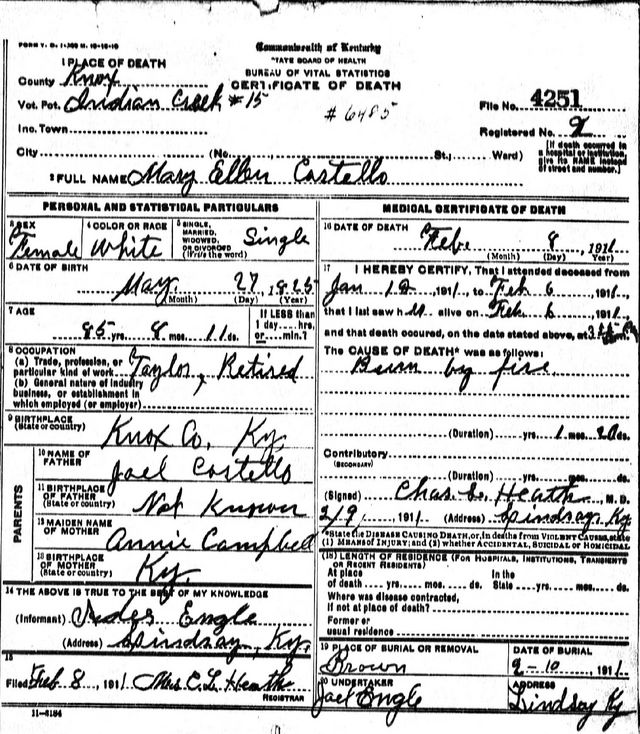 FORM V. S. 1-
Commonwealth of Kentucky
STATE BOARD OF HEALTH
BUREAU OF VITAL STATISTICS
CERTIFICATE OF DEATH
1 PLACE OF DEATH
County Knox
Vot. Pct. Indian Creek #15
# 6485
File No. 4251
Inc. Town
Registered No. 2
City (No. St.; Ward)
[If death occurred in a hospital or institution, give its NAME instead of street and number.]
2 FULL NAME Mary Ellen Costello
PERSONAL AND STATISTICAL PARTICULARS
3 SEX Female
4 COLOR OR RACE White
5 SINGLE, MARRIED, WIDOWED, OR DIVORCED (Write the word) Single
6 DATE OF BIRTH
May 27, 1825
(Month) (Day) (Year)
7 AGE
85 yrs. 8 mos. 11 ds.
If LESS than 1 day....hrs. or....min.?
8 OCCUPATION
(a) Trade, profession, or particular kind of work Taylor, Retired
(b) General nature of industry business, or establishment in which employed (or employer)
9 BIRTHPLACE (State or country)
Knox Co, Ky.
PARENTS
10 NAME OF FATHER Joel Costello
11 BIRTHPLACE OF FATHER (State or country) Not Known
12 MAIDEN NAME OF MOTHER Annie Campbell
13 BIRTHPLACE OF MOTHER (State or country) Ky.
14 THE ABOVE IS TRUE TO THE BEST OF MY KNOWLEDGE
(Informant) Engle
(Address) Lindsay, Ky.
15
Filed Feb 8, 1911 Mrs C. L. Heath
REGISTRAR
11-6184
MEDICAL CERTIFICATE OF DEATH
16 DATE OF DEATH
Feb. 8, 1911
(Month) (Day) (Year)
17 I HEREBY CERTIFY, That I attended deceased from
Jan 12, 1911, to Feb 6, 1911,
that I last saw h alive on Feb 6, 1911,
and that death occured, on the date stated above, at
The CAUSE OF DEATH* was as follows:
Burn by fire
(Duration) yrs. 1 mos. 20 ds.
Contributory
(SECONDARY)
(Duration) yrs. mos. ds.
(Signed) Chas. L. Heath, M. D.
2/9, 1911 (Address) Lindsay, Ky.
*State the DISEASE CAUSING DEATH, or, in deaths from VIOLENT CAUSES, state (1) MEANS OF INJURY; and (2) whether ACCIDENTAL, SUICIDAL OR HOMICIDAL
(18) LENGTH OF RESIDENCE (FOR HOSPITALS, INSTITUTIONS, TRANSIENTS OR RECENT RESIDENTS)
At place of death yrs. mos. ds. In the State yrs. mos. ds.
Where was disease contracted, if not at place of death?
Former or usual residence
19 PLACE OF BURIAL OR REMOVAL
Brown
DATE OF BURIAL
2-10, 1911
20 UNDERTAKER
Joel Engle
ADDRESS
Lindsay Ky